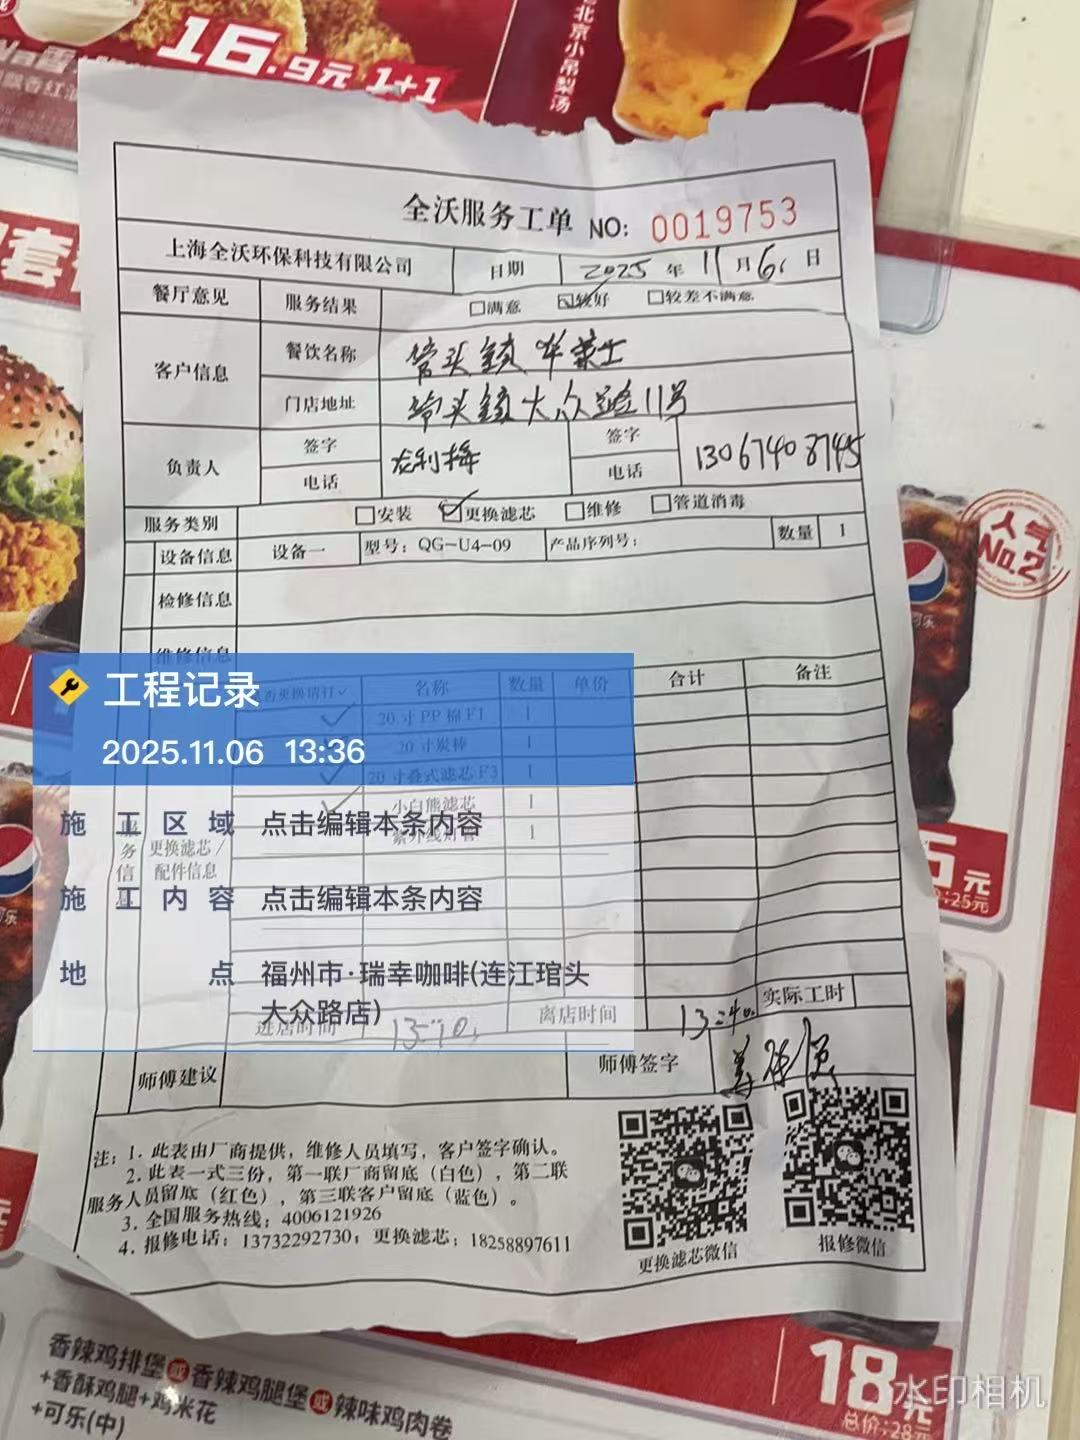 16.9元 1+1
北京小吊梨汤
套
全沃服务工单 NO: 0019753
上海全沃环保科技有限公司 日期 2025 年 11 月 6 日
餐厅意见 服务结果 □满意 ☑较好 □较差不满意
客户信息 餐饮名称 管头镇华莱士
门店地址 琯头镇大众路11号
负责人 签字 签字
电话 电话 13067408745
服务类别 □安装 ☑更换滤芯 □维修 □管道消毒
设备信息 设备一 型号: QG-U4-09 产品序列号: 数量 1
检修信息
维修信息
是否更换请打✓ 名称 数量 单价 合计 备注
✓ 20寸PP棉F1 1
20寸炭棒 1
✓ 20寸叠式滤芯F3 1
✓ 小白熊滤芯 1
紫外线灯管 1
服务信息 更换滤芯/配件信息
工程记录
2025.11.06 13:36
施工区域 点击编辑本条内容
施工内容 点击编辑本条内容
地点 福州市·瑞幸咖啡(连江琯头
大众路店)
进店时间 离店时间 13:40 实际工时
师傅建议 师傅签字
注: 1. 此表由厂商提供，维修人员填写，客户签字确认。
2. 此表一式三份，第一联厂商留底（白色），第二联
服务人员留底（红色），第三联客户留底（蓝色）。
3. 全国服务热线: 4006121926
4. 报修电话: 13732292730; 更换滤芯: 18258897611
更换滤芯微信 报修微信
人气
No.2
5元
:25元
香辣鸡排堡或香辣鸡腿堡或辣味鸡肉卷
+香酥鸡腿+鸡米花
+可乐(中)
18元
总价:28元
水印相机